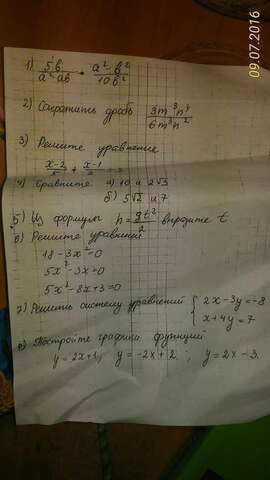 09.07.2016
1) 5в / а² - ав · а² - в² / 10 в²
2) Сократить дробь 3m³n⁴ / 6m³n²
3) Решите уравнение
x-2 / 5 + x-1 / 2
4) Сравните а) 10 и 2√3
б) 5√2 и 7
5) Из формулы h = gt² / 2 выразите t.
6) Решите уравнения
18 - 3x² = 0
5x² - 3x = 0
5x² - 8x + 3 = 0
7) Решить систему уравнений { 2x - 3y = -8
x + 4y = 7
8) Постройте графики функций
y = 2x + 1, y = -2x + 2 ; y = 2x - 3.